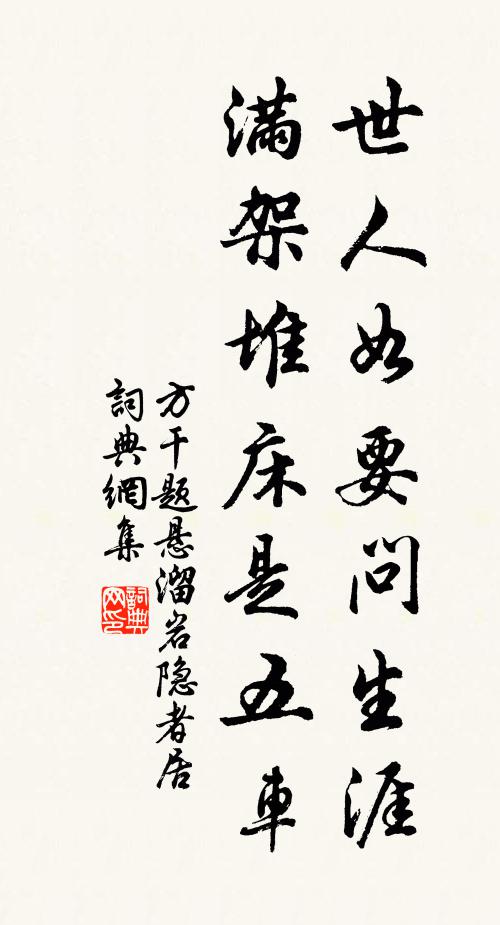 世人如要问生涯
满架堆床是五車
方干题悬溜岩隐者居
詞典網集
詞典网印